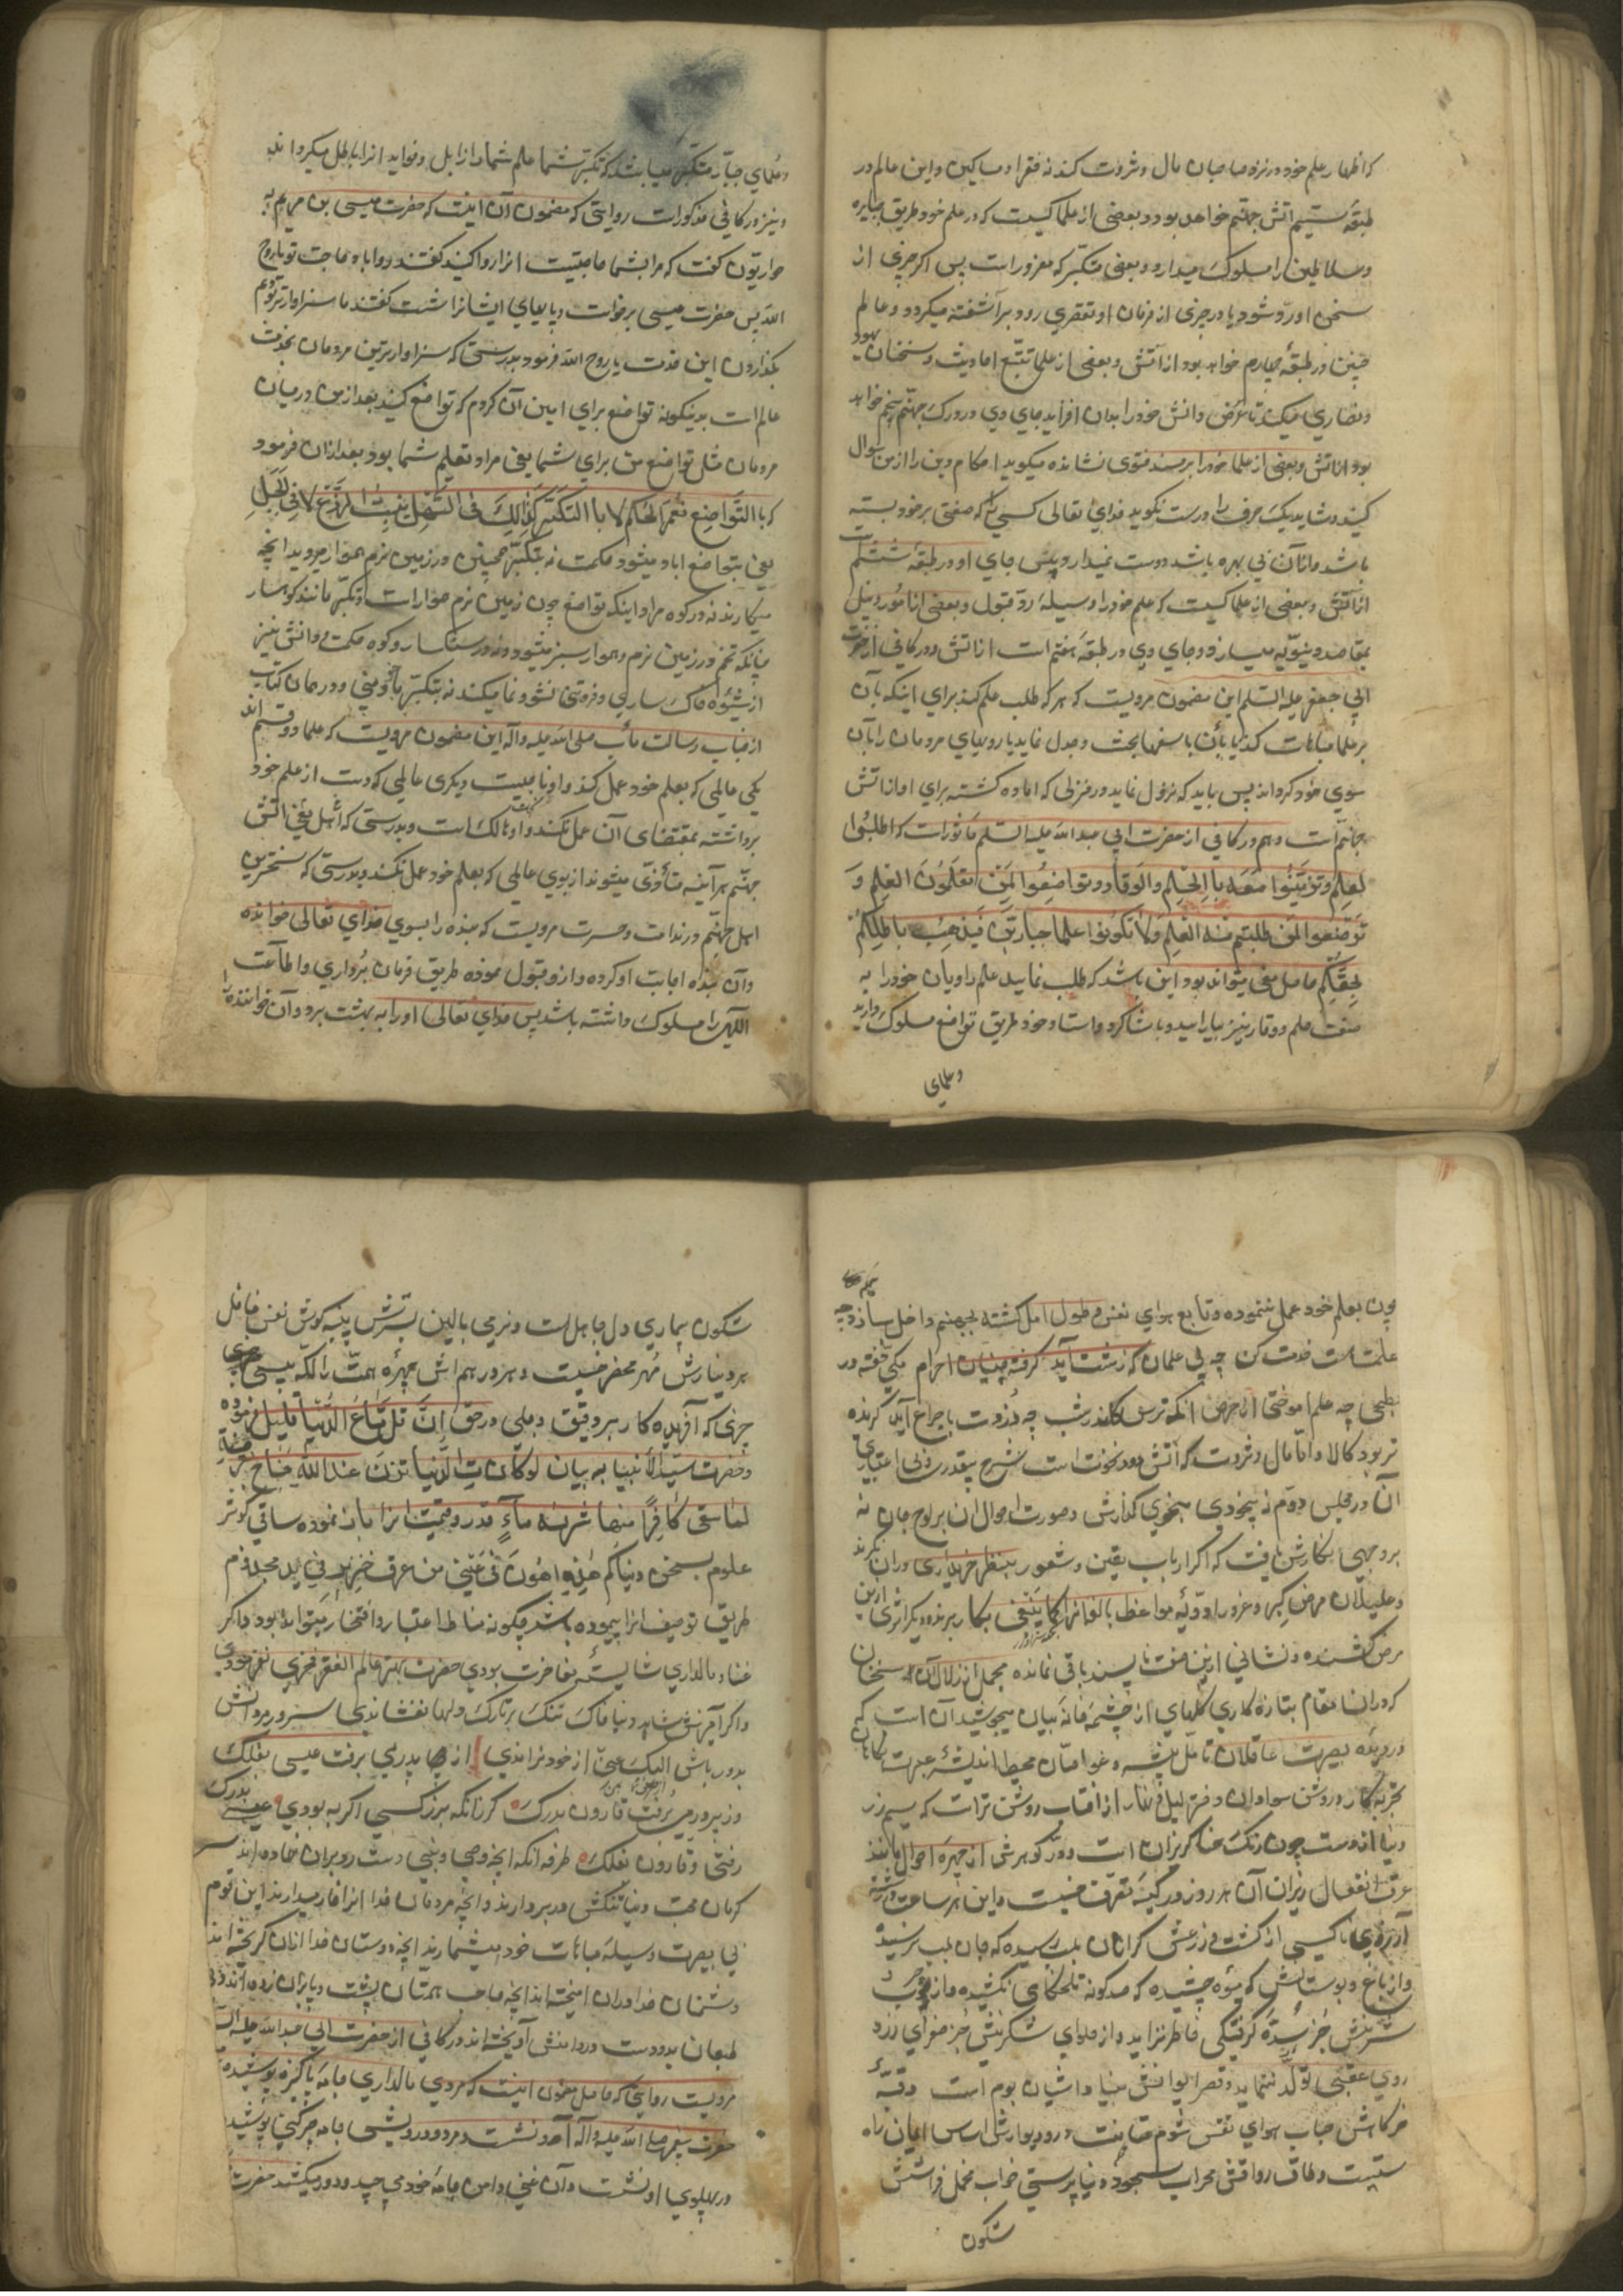 که اظهار علم خود در نزد صاحبان مال و ثروت کند نه فقرا و مساکین و این عالم در
طبقه سیم آتش جهنم خواهد بود و بعضی از علما کسیست که در علم خود طریق جبابره
و سلاطین را سلوک میدارد و بعضی متکبر که مغرور است پس اگر چیزی از
سخن او رد شود یا در چیزی از فرمان او تقصیری رود بر آشفته میگردد و عالم
چنین در طبقه چهارم خواهد بود از آتش و بعضی از علما تتبع احادیث و سخنان یهود
و نصاری میکند تا عرض دانش خود را بدان افزاید جای وی در درک جهنم پنجم خواهد
بود از آتش و بعضی از علما خود را بر مسند فتوی نشانده میگوید احکام دین را از من سوال
کنید و شاید یک حرف را درست نگوید خدای تعالی کسی را که صفتی بر خود بسته
باشد و از آن بی بهره باشد دوست نمیدارد پس جای او در طبقه ششم است
از آتش و بعضی از علما کسیست که علم خود را وسیله رد و قبول و بعضی از امور و نیل
بمقاصد دنیویه میسازد و جای وی در طبقه هفتم است از آتش و در کافی از حضرت
ابی جعفر علیه السلم این مضمون مرویست که هر که طلب علم کند برای اینکه بآن
بر علما مباهات کند یا بآن با سفها بحث و جدل نماید یا رویهای مردمان را بآن
سوی خود گرداند پس باید که نزول نماید در منزلی که آماده گشته برای او از آتش
جهنم است و هم در کافی از حضرت ابی عبدالله علیه السلم ماثور است که اطلبوا
لعلم وتزینوا معه بالحلم والوقار وتواضعوا لمن تعلمون العلم و
تواضعوا لمن طلبتم منه العلم ولا تکونوا علما جبارین فیذهب باطلکم
بحقکم حاصل معنی میتواند بود این باشد که طلب نمایید علم را و یان خود را به
صفت حلم و وقار نیز بیارایید و با شاگرد و استاد خود طریق تواضع مسلوک دارید
و علمای
و علمای جبار متکبر میباشد که تکبر شما علم شما را زایل و فواید آنرا باطل میگرداند
و نیز در کافی مذکور است روایتی که مضمون آن اینست که حضرت عیسی بن مریم به
حواریون گفت که مرا بشما حاجتیست آنرا روا کنید گفتند روا باد حاجت تو یا روح
الله پس حضرت عیسی برخواست و پایهای ایشانرا شست گفتند ما سزاوارتر بودیم
بگذاردن این خدمت یا روح الله فرمود بدرستی که سزاوارترین مردمان بخدمت
عالم است بدینگونه تواضع برای این آن کردم که تواضع کنید بعد از من در میان
مردمان مثل تواضع من برای شما یعنی مراد تعلیم شما بود بعد از آن فرمود
که بالتواضع تعمر الحکم لا بالتکبر کذالک فی السهل ینبت الزرع لا فی الجبل
یعنی بتواضع آباد میشود حکمت نه بتکبر همچنین در زمین نرم هموار میروید آنچه
میکارند نه در کوه مراد اینکه تواضع چون زمین نرم هموار است و تکبر مانند کوهسار
چنانکه تخم در زمین نرم و هموار سبز میشود و نه در سنگسار و کوه حکمت و دانش نیز
از شیوه خاکساری و فروتنی نشو و نما میکند نه بتکبر و منی و در همان کتاب
از جناب رسالت مآب صلی الله علیه و آله این مضمون مرویست که علما دو قسم اند
یکی عالمی که بعلم خود عمل کند و او ناجیست و دیگری عالمی که دست از علم خود
برداشته بمقتضای آن عمل نکند و او هالک است و بدرستی که اهل آتش
جهنم هر آینه متأذی میشوند از بوی عالمی که بعلم خود عمل نکند و بدرستی که سختترین
اهل جهنم در ندامت و حسرت مرویست که بنده را بسوی خدای تعالی خوانده
و آن بنده اجابت او کرده و ازو قبول نموده طریق فرمان برداری و اطاعت
الهی را مسلوک داشته باشد پس خدای تعالی او را به بهشت برد و آن خواننده را
چون بعلم خود عمل ننموده و تابع هوای نفس و طول امل گشته بجهنم داخل سازد چه
علمت هست خدمت کن چه بی علمان که زشت آید گرفته چینیان احرام مکی خفته در
بطحی چه علم آموختی از حرص آنگه ترس کاندر شب چه دزدت با چراغ آید گزیده
تر برد کالا و اما مال و ثروت که آتش دود نخوت است شرح بیقدری و بی اعتباری
آن در مجلس دوم نه بیخودی گذارش و صورت احوال آن بر لوح جان نه
بر وجهی نگارش یافت که اگر ارباب یقین و شعور بنظر خریداری در آن نگرند
و علیلان مرض کبر و غرور ادویه مواعظ بالغه آنرا کما ینبغی بکار برند دیگر اثری ازین
مرض کشنده و نشانی ازین صفت ناپسند باقی نمانده مجمل از زلال آن سخنان
که در آن مقام بتازه کاری کلهای از چشمه خانه بیان میجوشید آن است که
در دیده بصیرت عاقلان تامل پیشه و غواصان محیط اندیشه عبرت
تجربه کار و روشن سوادان دفتر لیل و نهار از آفتاب روشن تر است که سیم و زر
دنیا از دست چون رنگ حنا گریزان است و در گوهرش از چهره احوال مانند
عرق انفعال ریزان آن هر روز در کیسه تصرف خسیست و این هر ساعت در رشته
آرزوی ناکسی از کشت و زرعش گرانان بلب رسیده که جان بلب نرسید
و از باغ و بوستانش که میوه چشیده که صدگونه تلخکامی نکشیده و از چرب
شیرینش جز سده گرفتگی خاطر نزاید و از حلوای شکرینش جز صفرای زرد
روی عقبی تولد ننماید و قصر ایوانش بنیاد آشیان بوم است و قبه
خرگاهش حباب هوای نفس شوم در و دیوارش اساس ایمان را
سستیست و طاق رواقش محراب سجود دنیا پرستی خواب مخمل فراشش
شکون
شکون بیماری دل جاهلست و نرمی بالین پرش پنبه گوش نفس غافل
هر دینارش مهر محضر خسیست و هر درهم اش چهره همت را لکه پیسی
چیزی که آفریده کار بر دقیق و جلی در حق آن قل متاع الدنیا قلیل فرموده
و حضرت سید الانبیا به بیان لو کانت الدنیا تزن عند الله جناح بعوضة
لما سقی کافرا منها شربة ماء قدر و قیمت آنرا بیان نموده ساقی کوثر
علوم بسخن دنیاکم هذه اهون فی عینی من عرق خنزیر فی ید مجذوم
طریق توصیف آنرا پیموده باشد چگونه مناط اعتبار و افتخار میتواند بود و اگر
غنا و مالداری شایسته مفاخرت بودی حضرت بهتر عالم الفقر فخری نفرمودی
و اگر آمیزش شاهد دنیا خاک ننگ بر تارک دلها نفشاندی سرور مردانش
بدور باش الیک عنی از خود نراندی از ره پدری برفت عیسی بفلک
وز پیروی برفت قارون بدرک گر زانکه بزر کسی اکر به بودی عیسی بدرک
رفتی و قارون بفلک طرفه آنکه آنچه وصی و نبی دست رو بر آن نهاده اند
گرمان محبت دنیا تنگش در بر دارند و آنچه مردمان خدا از آن عار میدارند این قوم
بی بصیرت وسیله مباهات خود میشمارند آنچه دوستان خدا از آن گریخته اند
دشمنان خدا در آن آمیخته اند آنچه صاحب همتان پشت و پا بر آن زده اند
طبعان بدو دست در دامنش آویخته اند در کافی از حضرت ابی عبدالله علیه السلم
مرویست روایتی که حاصل مضمون اینست که مردی مالداری جامه پاکیزه پوشیده
حضرت پیغمبر صلی الله علیه و آله آمد و نشست و مرد و درویشی جامه چرکین پوشیده
در پهلوی او نشست و آن غنی دامن جامه خود می چید و دور میکشید حضرت